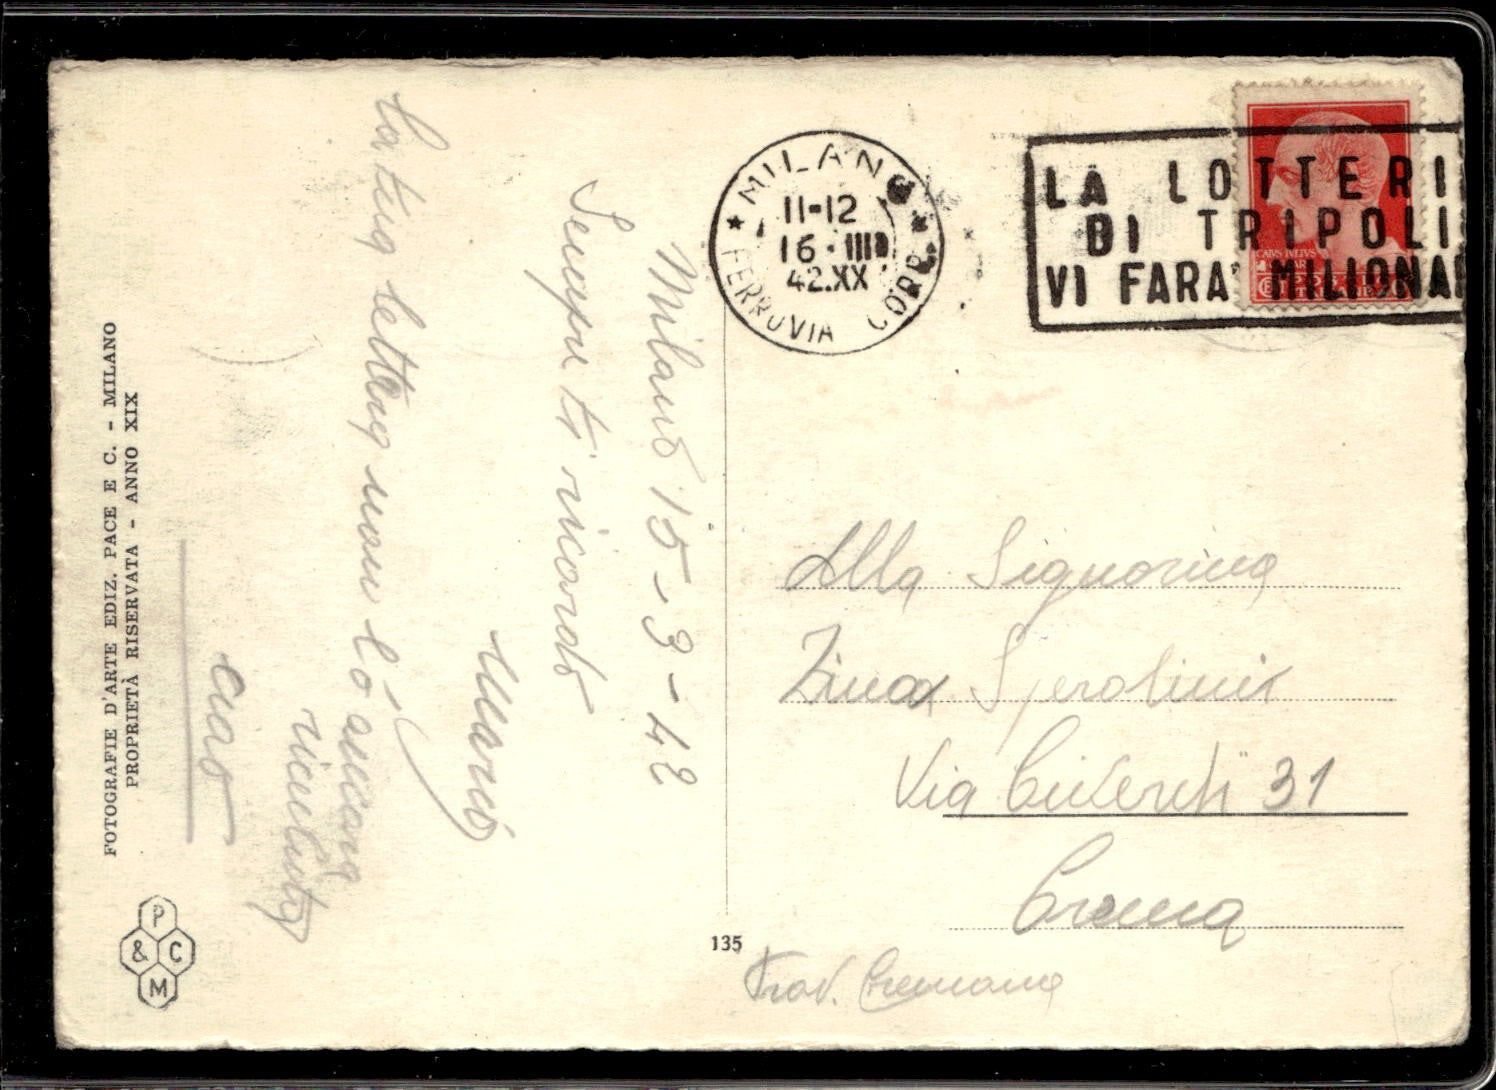 MILANO
11-12
16·III
42.XX
FERROVIA CORR.
LA LOTTERI
DI TRIPOLI
VI FARA' MILIONAR
Milano 15-3-42
Sempre ti ricordo
Mario
la tua lettera non l'ò
ancora
ricevuta
ciao
Alla Signorina
Zina
Via 31
Crema
Prov. Cremona
135
FOTOGRAFIE D'ARTE EDIZ. PACE E C. - MILANO
PROPRIETÀ RISERVATA - ANNO XIX
P
& C
M